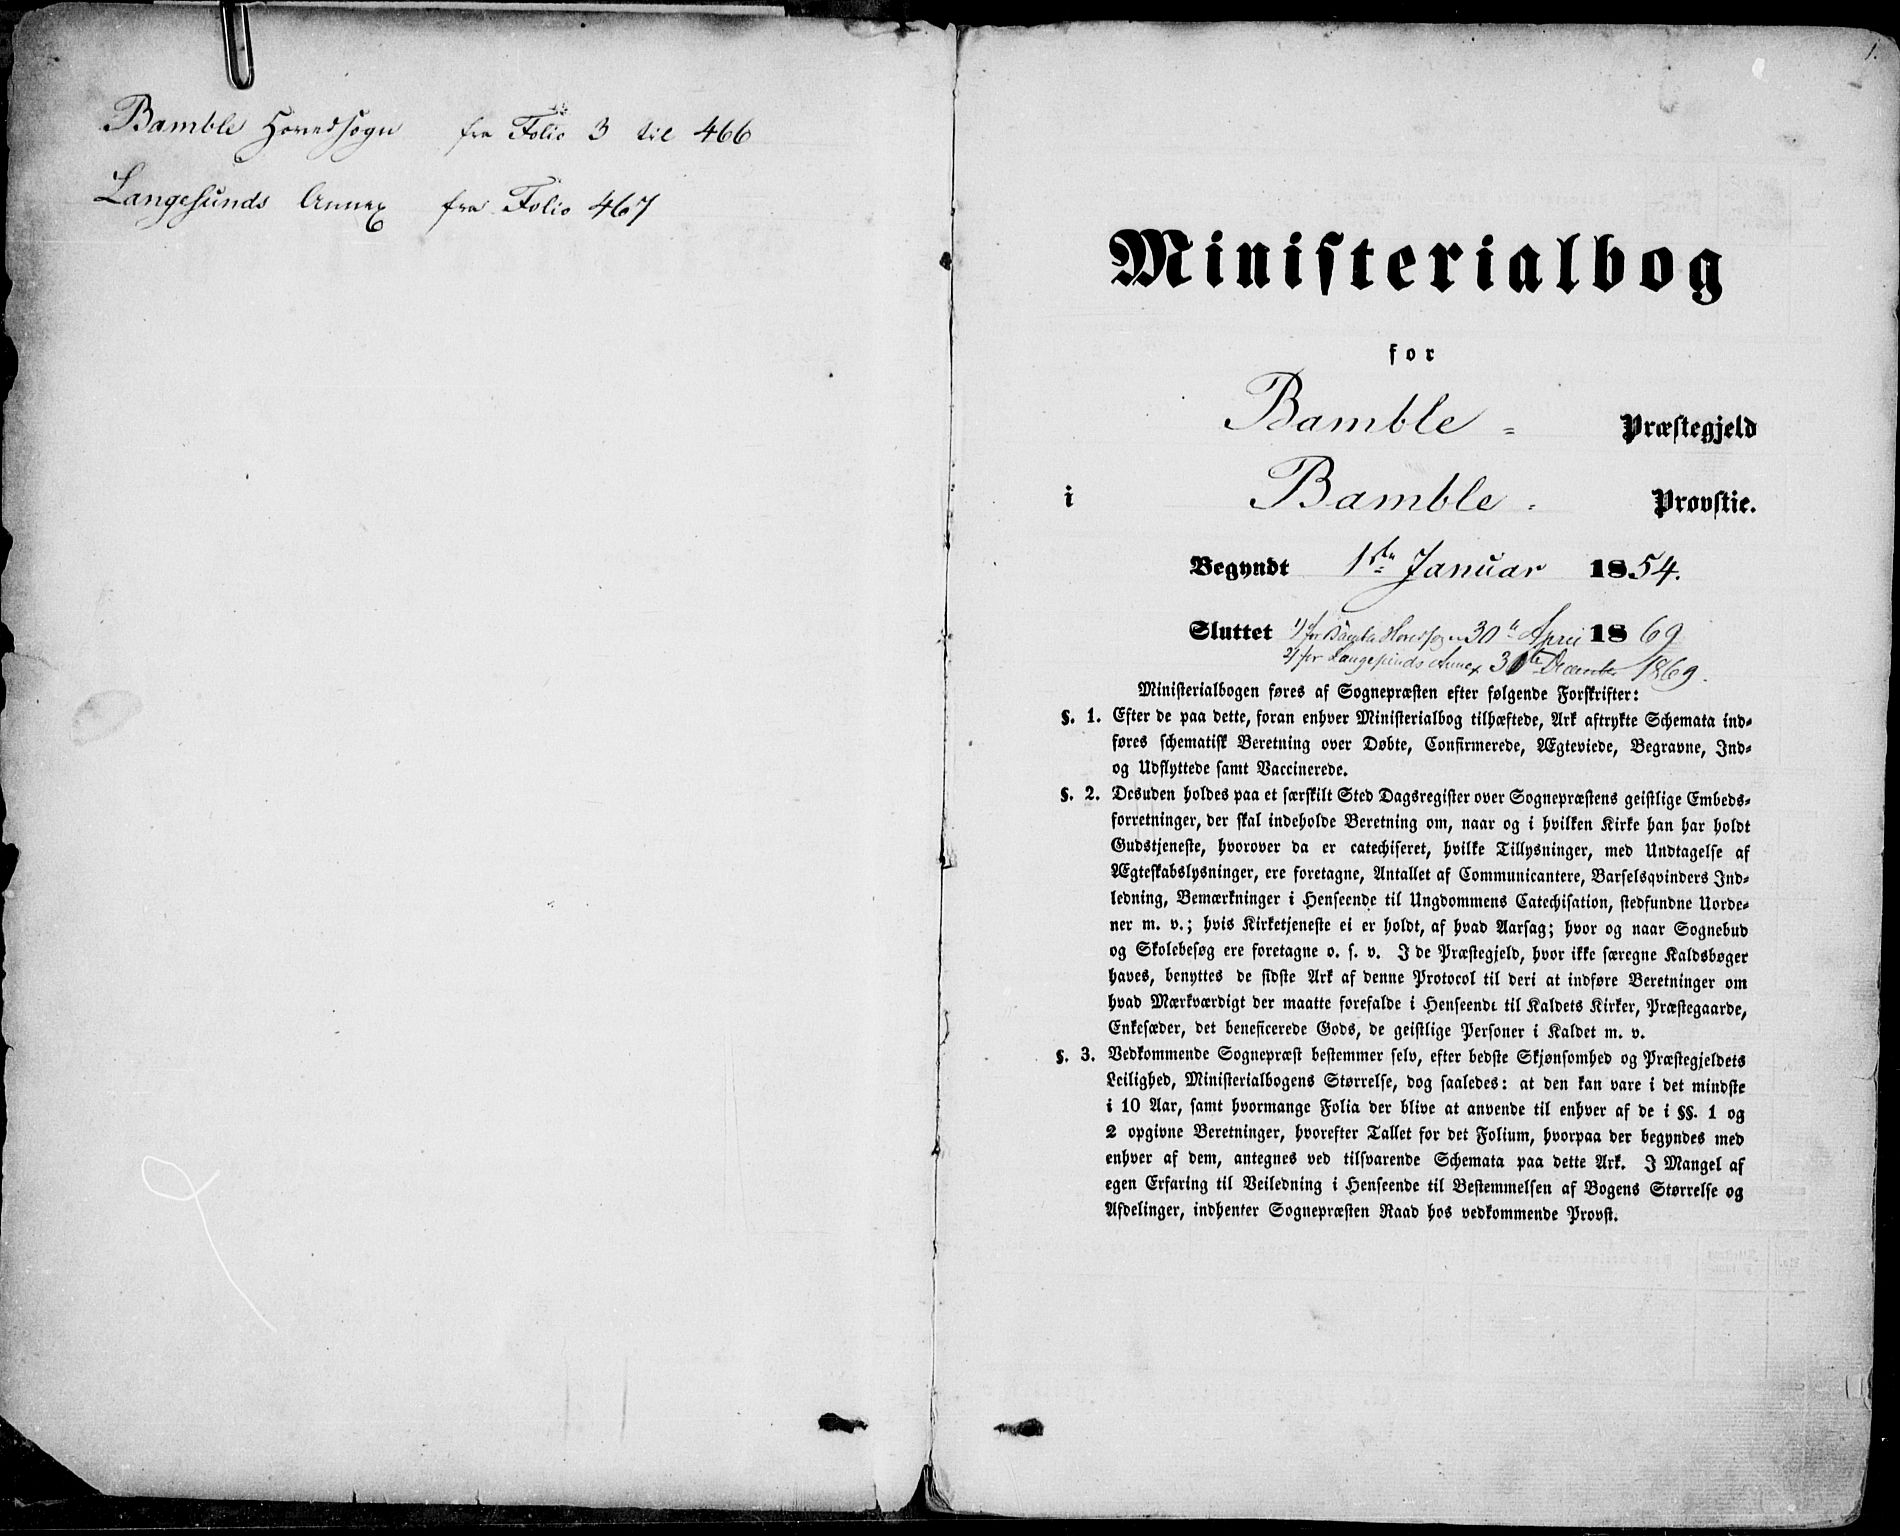 Bamble Hovedsogn fra Folio 3 til 466
Langesunds Annex fra Folio 467
1.
Ministerialbog
for
Bamble = Præstegjeld
i Bamble = Provstie.
Begyndt 1ste Januar 1854.
Sluttet 1) for Bamble Hovedsogn 30te April 1869
2) for Langesunds Annex 31te December 1869.
Ministerialbogen føres af Sognepræsten efter følgende Forskrifter:
§. 1. Efter de paa dette, foran enhver Ministerialbog tilhæftede, Ark aftrykte Schemata ind-
føres schematisk Beretning over Døbte, Confirmerede, Ægteviede, Begravne, Ind-
og Udflyttede samt Vaccinerede.
§. 2. Desuden holdes paa et særskilt Sted Dagsregister over Sognepræstens geistlige Embeds-
forretninger, der skal indeholde Beretning om, naar og i hvilken Kirke han har holdt
Gudstjeneste, hvorover da er catechiseret, hvilke Tillysninger, med Undtagelse af
Ægteskabslysninger, ere foretagne, Antallet af Communicantere, Barselsqvinders Ind-
ledning, Bemærkninger i Henseende til Ungdommens Catechisation, stedfundne Uorde-
ner m. v.; hvis Kirketjeneste ei er holdt, af hvad Aarsag; hvor og naar Sognebud
og Skolebesøg ere foretagne o. s. v. I de Præstegjeld, hvor ikke særegne Kaldsbøger
haves, benyttes de sidste Ark af denne Protocol til deri at indføre Beretninger om
hvad Mærkværdigt der maatte forefalde i Henseende til Kaldets Kirker, Præstegaarde,
Enkesæder, det beneficerede Gods, de geistlige Personer i Kaldet m. v.
§. 3. Vedkommende Sognepræst bestemmer selv, efter bedste Skjønsomhed og Præstegjeldets
Leilighed, Ministerialbogens Størrelse, dog saaledes: at den kan vare i det mindste
i 10 Aar, samt hvormange Folia der blive at anvende til enhver af de i §§. 1 og
2 opgivne Beretninger, hvorefter Tallet for det Folium, hvorpaa der begyndes med
enhver af dem, antegnes ved tilsvarende Schemata paa dette Ark. I Mangel af
egen Erfaring til Veiledning i Henseende til Bestemmelsen af Bogens Størrelse og
Afdelinger, indhenter Sognepræsten Raad hos vedkommende Provst.